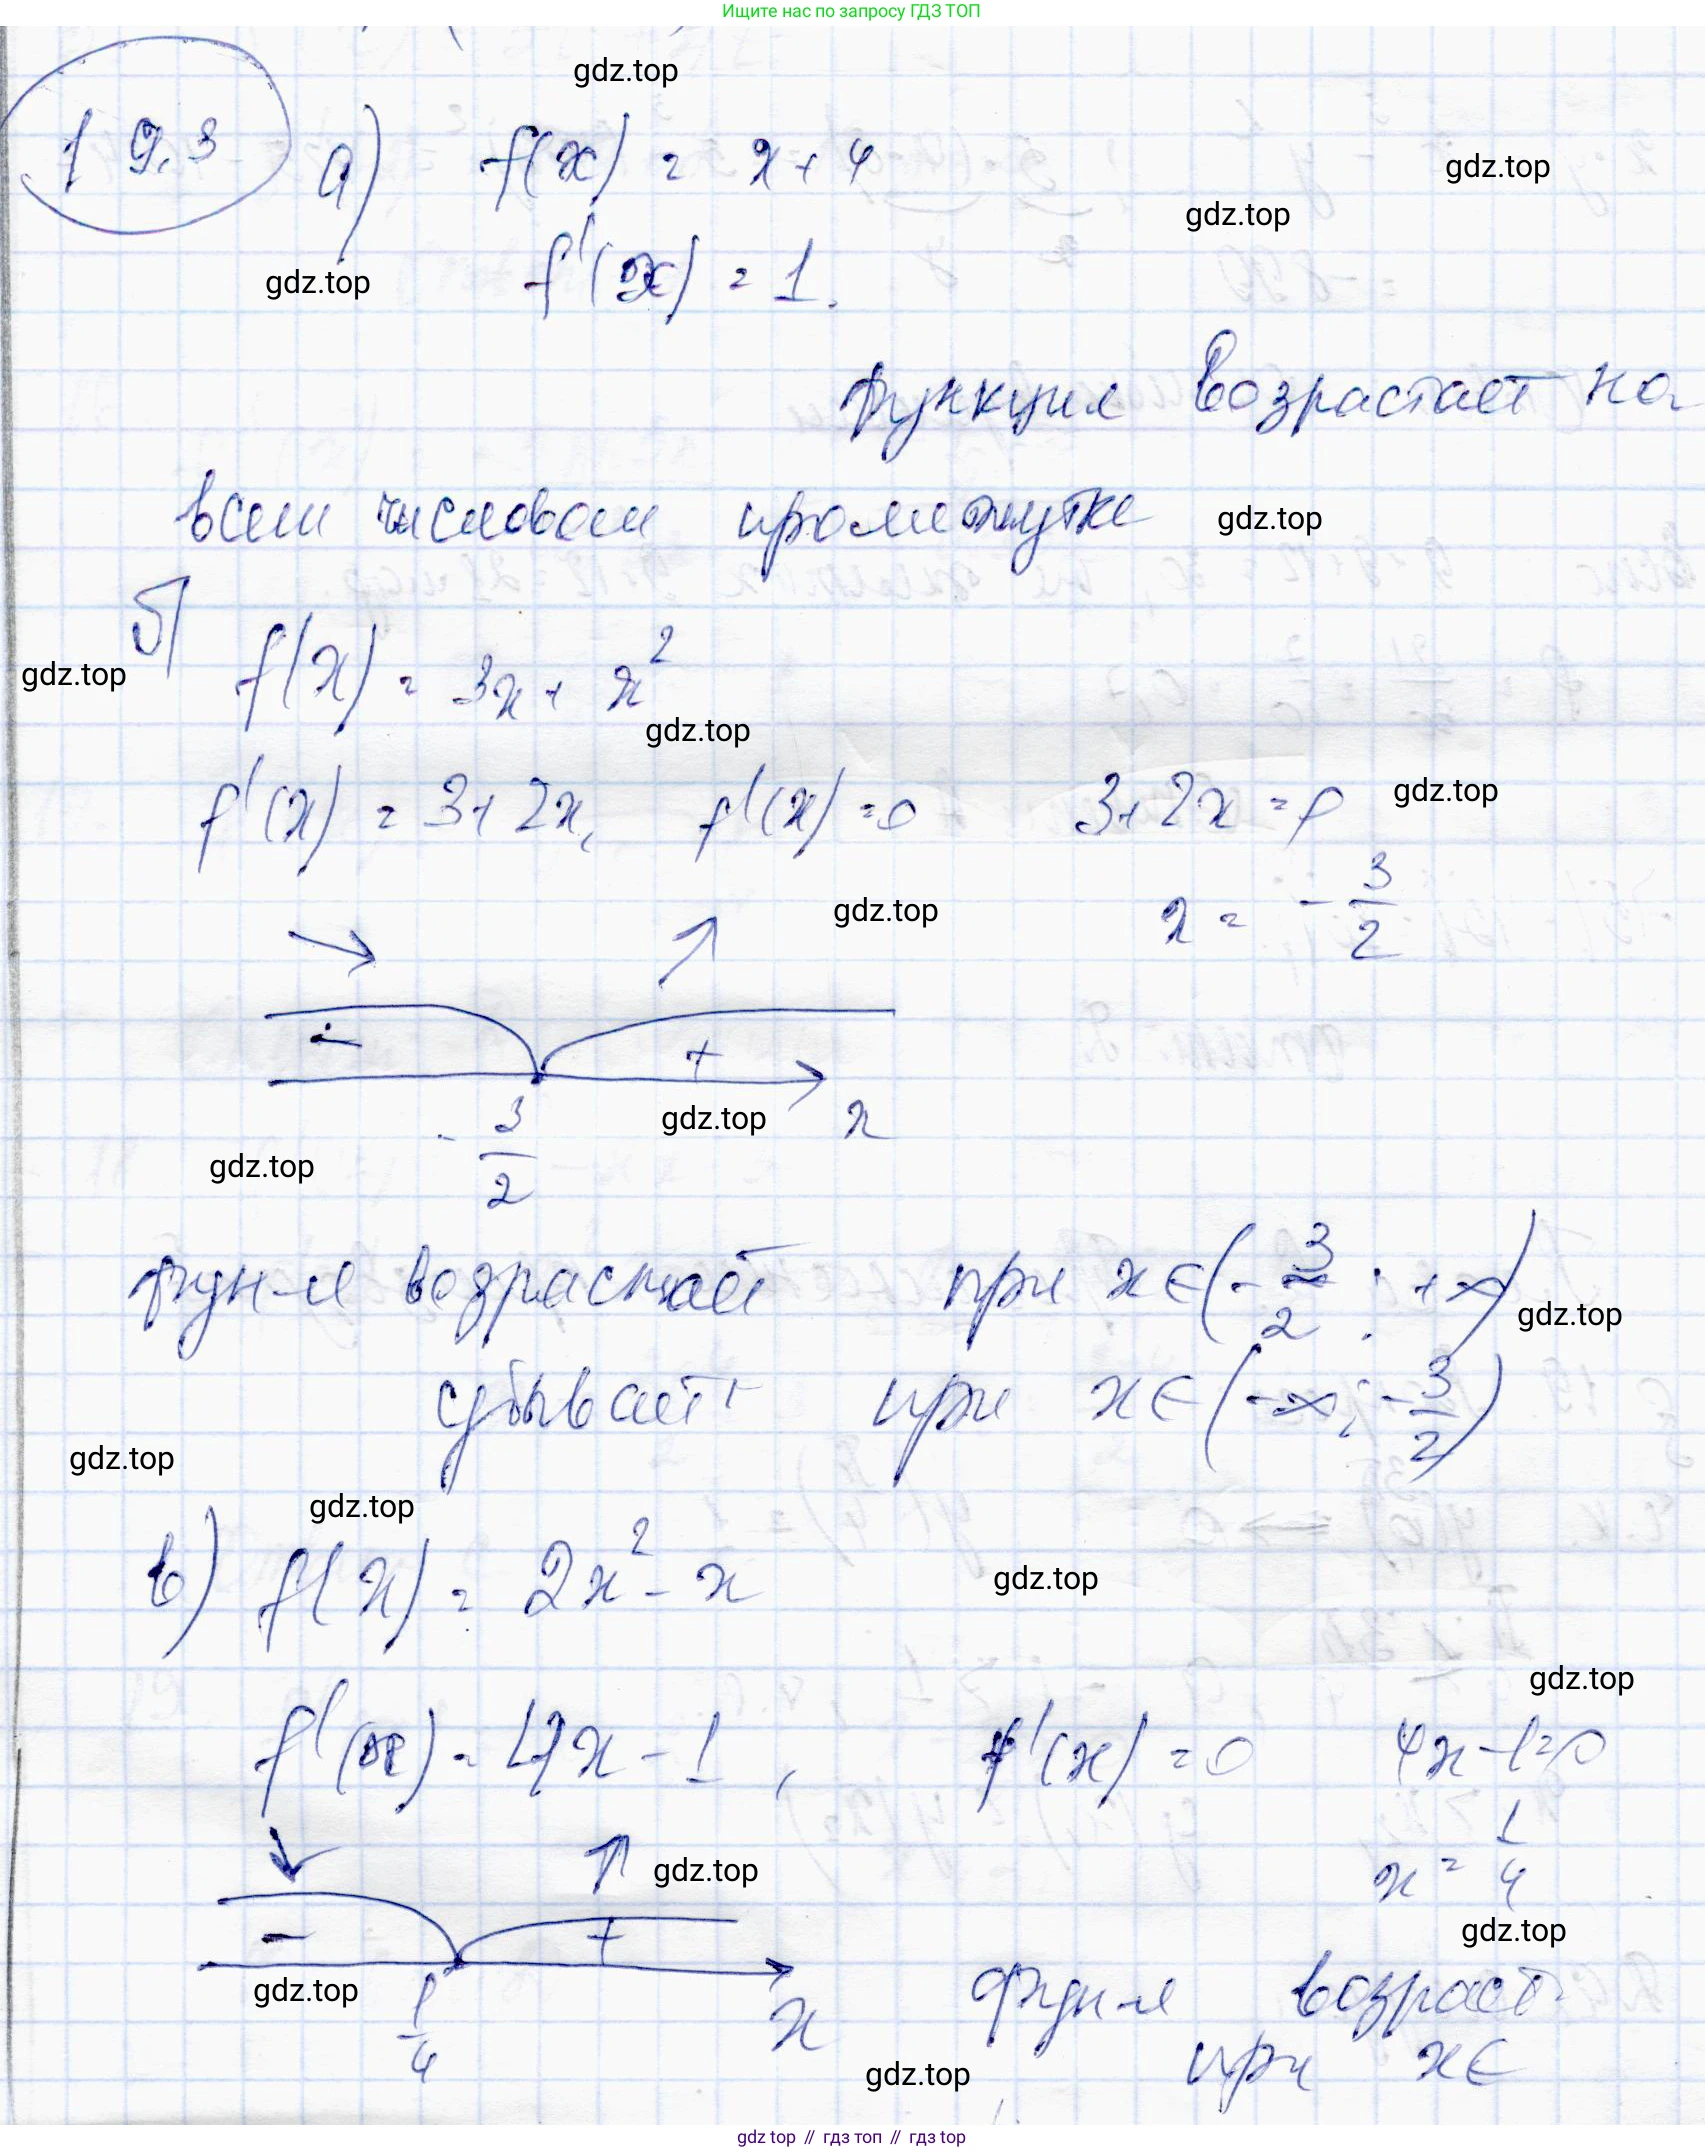 Ищите нас по запросу ГДЗ ТОП
gdz.top
19.3 а) f(x) = x + 4
gdz.top
gdz.top
gdz.top
f'(x) = 1.
функция возрастает на
всем числовом промежутке
gdz.top
б)
f(x) = 3x + x²
gdz.top
gdz.top
f'(x) = 3 + 2x, f'(x) = 0 3 + 2x = 0
gdz.top
x = - 3/2
gdz.top
- +
x
- 3/2
gdz.top
gdz.top
фун-я возрастает при x ∈ (- 3/2 ; +∞)
gdz.top
убывает при x ∈ (-∞; - 3/2)
gdz.top
gdz.top
в) f(x) = 2x² - x
gdz.top
gdz.top
f'(x) = 4x - 1, f'(x) = 0 4x - 1 = 0
x = 1/4
gdz.top
gdz.top
- +
gdz.top
1/4
x
фун-я возраст.
при x ∈
gdz.top
gdz top // гдз топ // гдз top